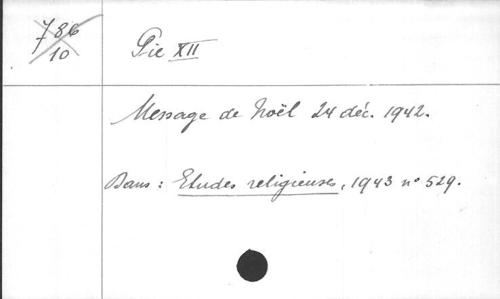 786
10
Pie XII
Message de Noël 24 déc. 1942.
Dans : Etudes religieuses, 1943 n° 529.